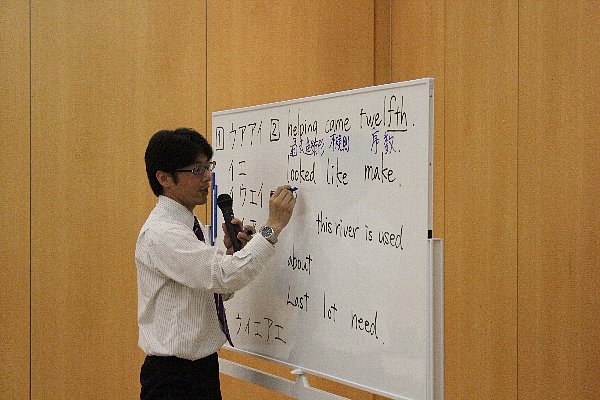 1 ウアアイ 2 helping came twelfth.
不規則 序数
イニ looked like make.
イウエイ
this river is used
about
Last lot need.
ウイエアエ